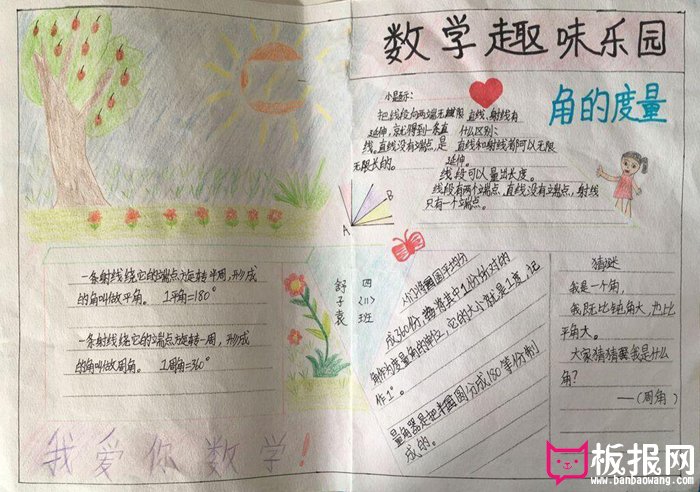 数学趣味乐园
角的度量
小显示：
把线段向两端无限
延伸，就得到一条直
线。直线没有端点，是
无限长的。
直线、射线有
什么区别：
直线和射线都可以无限
延伸。
线段可以量出长度。
线段有两个端点，直线没有端点，射线
只有一个端点。
A
B
一条射线绕它的端点旋转半周，形成
的角叫做平角。 1平角=180°
一条射线绕它的端点旋转一周，形成
的角叫做周角。 1周角=360°
四
(11)
班
舒
子
袁
人们将圆平均分
成360份，将其中1份所对的
角作为度量角的单位，它的大小就是1度，记
作1°。
量角器是把半圆分成180等份制
成的。
猜谜
我是一个角，
我既比钝角大，也比
平角大。
大家猜猜我是什么
角？
——(周角)
我爱你数学！
板报网
www.banbaowang.com